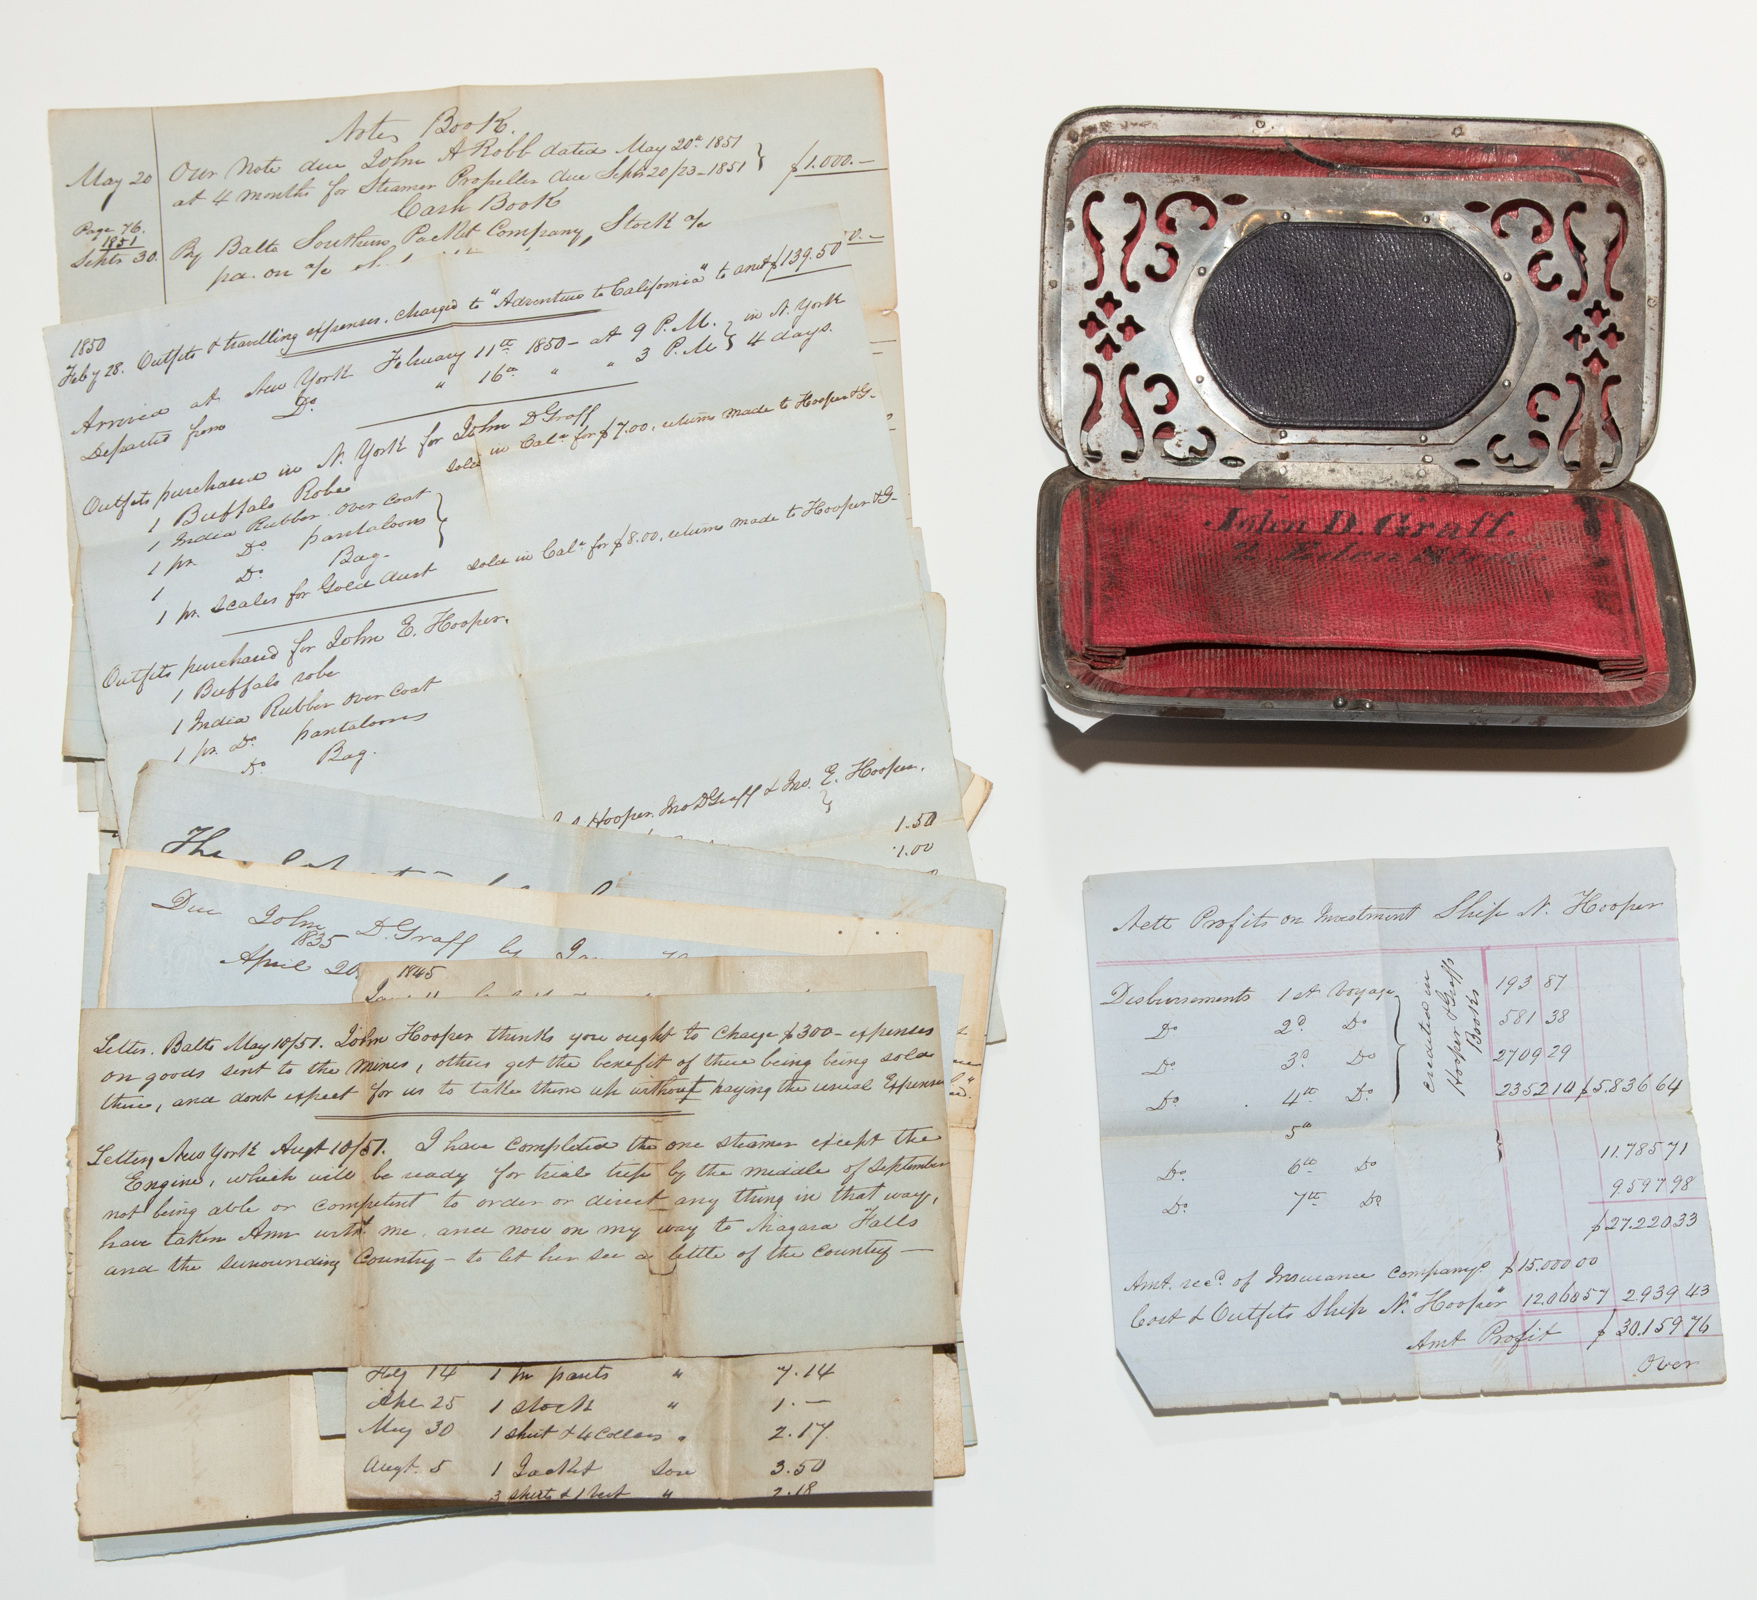 Notes Book.
May 20 Our Note due John A Robb dated May 20th 1851
at 4 months for Steamer Propeller due Septr 20/23-1851 } $1.000.—
Cash Book
Page 76.
1851
Septr 30. By Balto Southern Packet Company, Stock a/c
pd. on a/c of
0.—
1850
Feby 28. Outfits & travelling expenses, charged to "Adventure to California" to amt $139.50
Arrived at New York February 11th 1850 — at 9 P.M. } in N. York
Departed from Do " 16th " " 3 P.M } 4 days.
Outfits purchased in N. York for John D Graff
1 Buffalo Robe sold in Cala for $7.00, return made to Hooper & G-
1 India Rubber over coat
1 pr. Do pantaloons
1 Do Bag.
1 pr. scales for Gold dust sold in Cala for $8.00, return made to Hooper & G-
Outfits purchased for John E. Hooper.
1 Buffalo robe
1 India Rubber over coat
1 pr. Do pantaloons
Do Bag.
Hooper. Jno D Graff & Jno. E. Hooper.
1.50
1.00
The
Due John D. Graff by
1835
April 20
1845
Letter. Balto May 10/51. John Hooper thinks you ought to charge $300- expenses
on goods sent to the mines, others get the benefit of there being being sold
there, and dont expect for us to take them up without paying the usual Expenses
Letter, New York Augt 10/51. I have completed the one steamer except the
Engine, which will be ready for trial trip by the middle of September
not being able or competent to order or direct any thing in that way,
have taken Ann with me, and now on my way to Niagara Falls
and the surrounding Country — to let her see a little of the country —
Feby 14 1 pr pants " 7.14
Ahl 25 1 stock " 1.—
May 30 1 shirt & 4 collars " 2.17
Augt. 5 1 Jacket son 3.50
3 shirts & 1 vest " 2.18
John D. Graff.
Nett Profits on Investment Ship N. Hooper
Disbursements 1st Voyage } credited in Hooper & Graffs Books 193 87
Do 2d Do 581 38
Do 3d Do 2709 29
Do 4th Do 2352 10 $5.836 64
5th
Do 6th Do 11.785 71
Do 7th Do 9.597 98
$27.220 33
Amt. recd. of Insurance Companys $15.000 00
Cost & Outfits Ship "N. Hooper" 12.060 57 2939 43
Amt Profit $30.159 76
Over